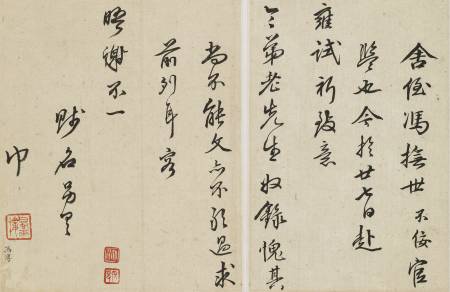 舍侄馮撫世不佞官
暨也今於廿七日赴
雍試祈致意
令弟老先生收錄愧其
尚不能文亦不敢過求
前列耳容
晤謝不一
賤名另具